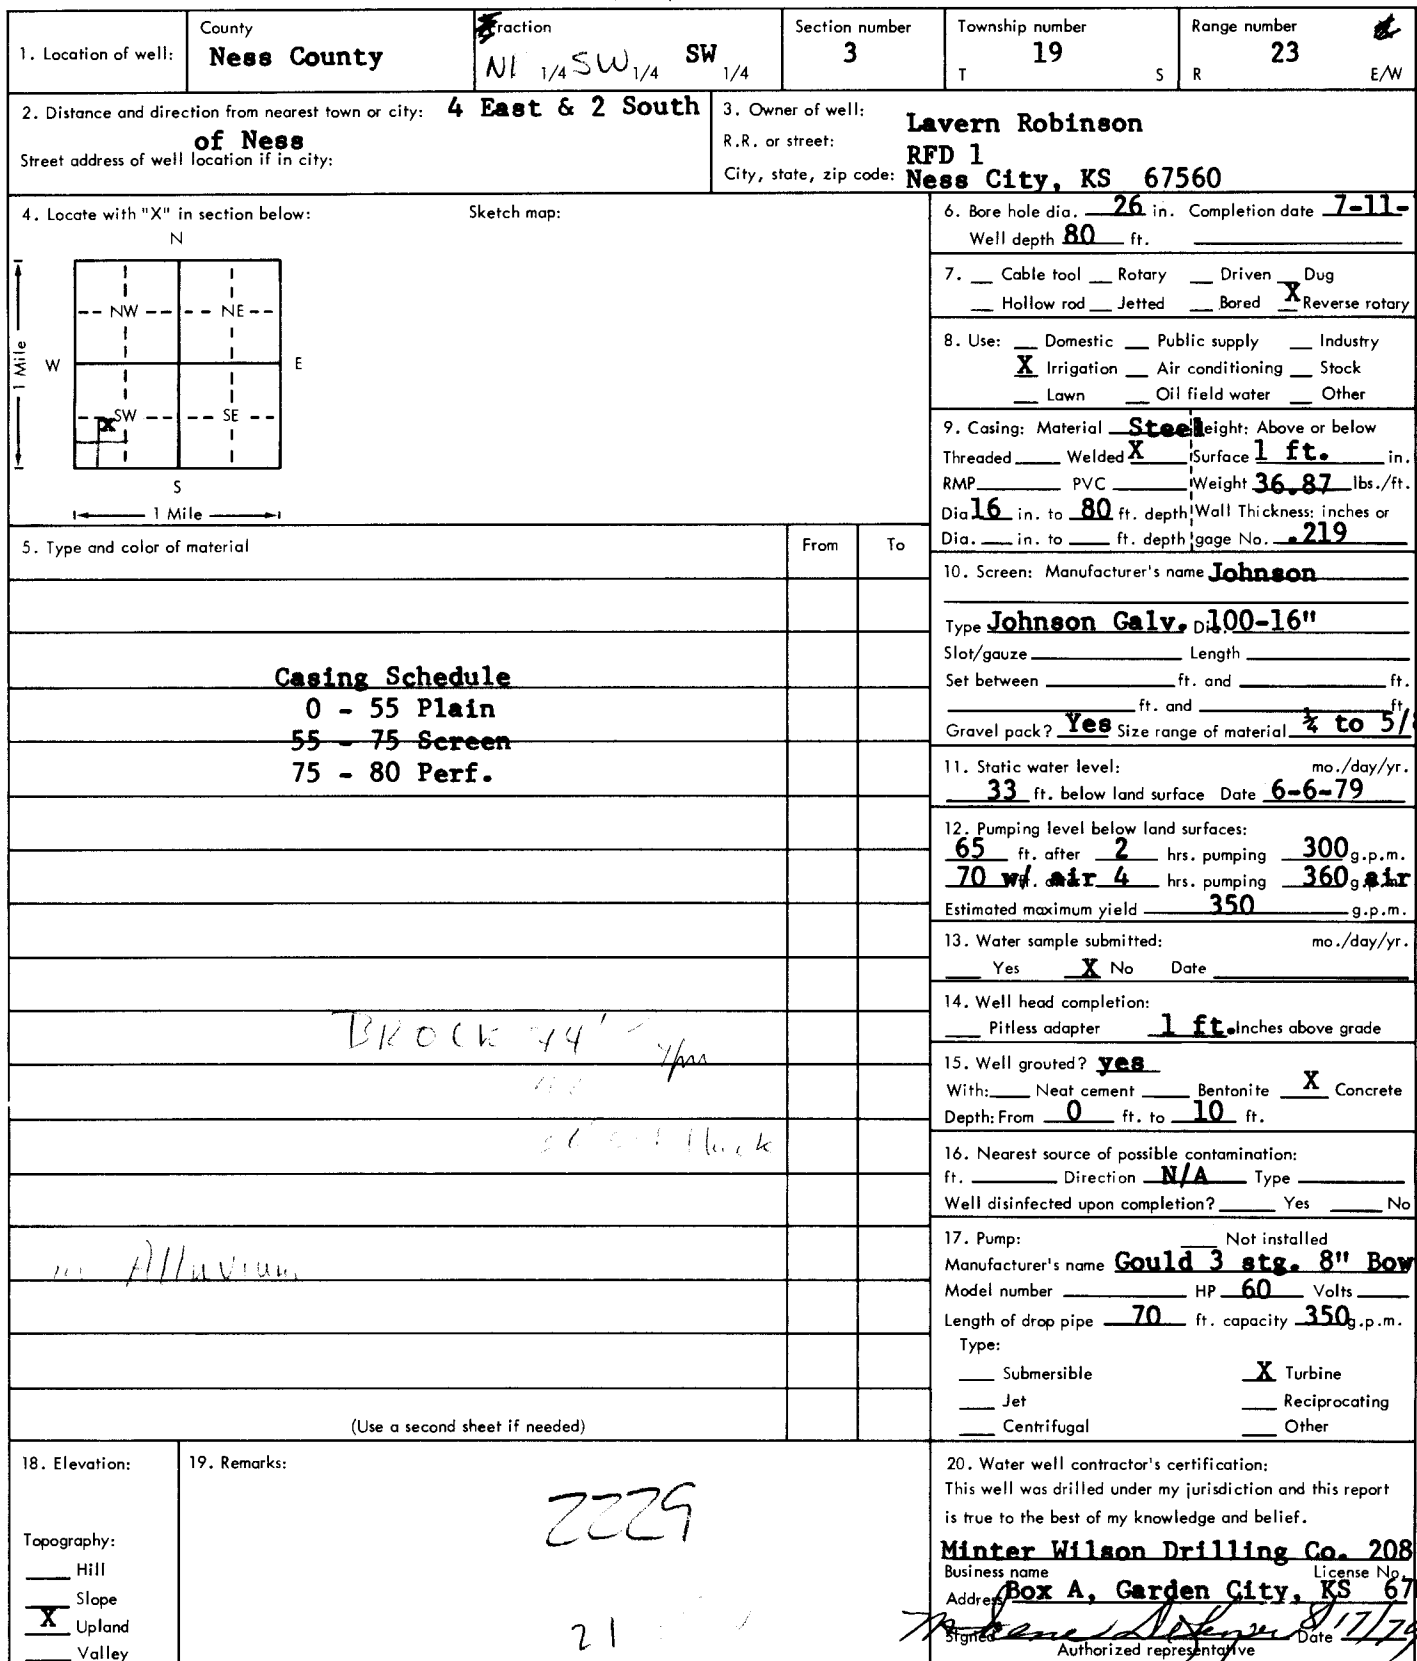 County
Fraction
Section number
Township number
Range number
1. Location of well:
Ness County
1/4 SW 1/4 SW 1/4
3
19
23
T S
R E/W
2. Distance and direction from nearest town or city: 4 East & 2 South
of Ness
Street address of well location if in city:
3. Owner of well:
Lavern Robinson
R.R. or street:
RFD 1
City, state, zip code: Ness City, KS 67560
4. Locate with "X" in section below:
Sketch map:
N
NW NE
W E
1 Mile
X SW SE
S
1 Mile
5. Type and color of material
From To
Casing Schedule
0 - 55 Plain
55 - 75 Screen
75 - 80 Perf.
BROCK 44'
Alluvium
(Use a second sheet if needed)
6. Bore hole dia. 26 in. Completion date 7-11-
Well depth 80 ft.
7. Cable tool Rotary Driven Dug
Hollow rod Jetted Bored X Reverse rotary
8. Use: Domestic Public supply Industry
X Irrigation Air conditioning Stock
Lawn Oil field water Other
9. Casing: Material Steel Height: Above or below
Threaded Welded X Surface 1 ft. in.
RMP PVC Weight 36.87 lbs./ft.
Dia 16 in. to 80 ft. depth Wall Thickness: inches or
Dia. in. to ft. depth gage No. .219
10. Screen: Manufacturer's name Johnson
Type Johnson Galv. Dia. 100-16"
Slot/gauze Length
Set between ft. and ft.
ft. and ft.
Gravel pack? Yes Size range of material ¼ to 5/8
11. Static water level: mo./day/yr.
33 ft. below land surface Date 6-6-79
12. Pumping level below land surfaces:
65 ft. after 2 hrs. pumping 300 g.p.m.
70 w/ air 4 hrs. pumping 360 g.p.m. air
Estimated maximum yield 350 g.p.m.
13. Water sample submitted: mo./day/yr.
Yes X No Date
14. Well head completion:
Pitless adapter 1 ft. Inches above grade
15. Well grouted? yes
With: Neat cement Bentonite X Concrete
Depth: From 0 ft. to 10 ft.
16. Nearest source of possible contamination:
ft. Direction N/A Type
Well disinfected upon completion? Yes No
17. Pump: Not installed
Manufacturer's name Gould 3 stg. 8" Bow
Model number HP 60 Volts
Length of drop pipe 70 ft. capacity 350 g.p.m.
Type:
Submersible X Turbine
Jet Reciprocating
Centrifugal Other
18. Elevation:
Topography:
Hill
Slope
X Upland
Valley
19. Remarks:
2229
21
20. Water well contractor's certification:
This well was drilled under my jurisdiction and this report
is true to the best of my knowledge and belief.
Minter Wilson Drilling Co. 208
Business name License No.
Address Box A, Garden City, KS 67
Signed Date 8/17/79
Authorized representative